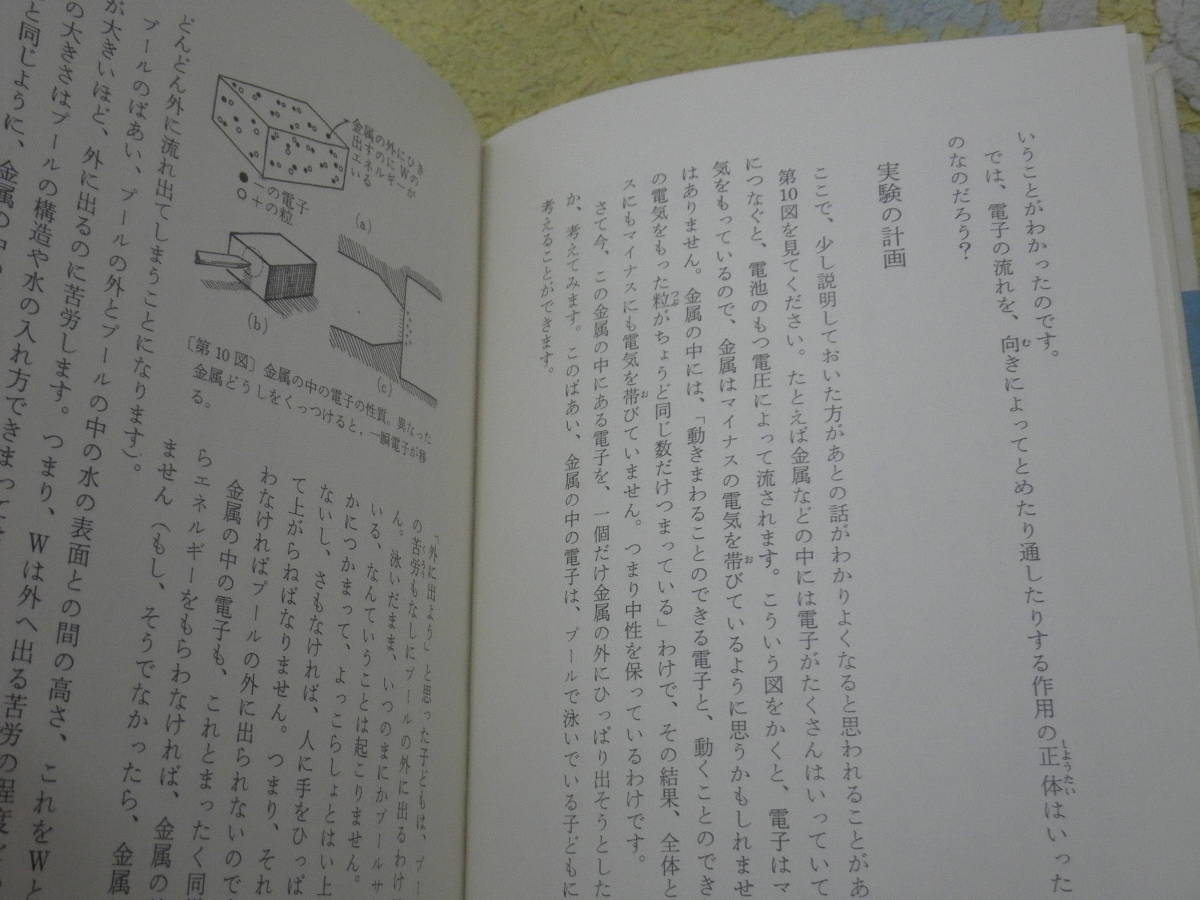 いうことがわかったのです。
では、電子の流れを、向きによってとめたり通したりする作用の正体はいった
のなのだろう?
実験の計画
ここで、少し説明しておいた方があとの話がわかりよくなると思われることがあ
第10図を見てください。たとえば金属などの中には電子がたくさんはいっていて
につなぐと、電池のもつ電圧によって流されます。こういう図をかくと、電子はマ
気をもっているので、金属はマイナスの電気を帯びているように思うかもしれませ
はありません。金属の中には、「動きまわることのできる電子と、動くことのでき
の電気をもった粒がちょうど同じ数だけつまっている」わけで、その結果、全体と
スにもマイナスにも電気を帯びていません。つまり中性を保っているわけです。
さて今、この金属の中にある電子を、一個だけ金属の外にひっぱり出そうとした
か、考えてみます。このばあい、金属の中の電子は、プールで泳いでいる子どもに
考えることができます。
金属の外にひき
出すのにWの
エネルギーが
いる
●−の電子
○+の粒
(a)
(b)
(c)
〔第10図〕金属の中の電子の性質。異なった
金属どうしをくっつけると,一瞬電子が移
る。
「外に出よう」と思った子どもは、プー
の苦労もなしにプールの外に出るわけ
ん。泳いだまま、いつのまにかプールサ
いる、なんていうことは起こりません。
かにつかまって、よっこらしょとはい上
ないし、さもなければ、人に手をひっぱ
て上がらねばなりません。つまり、それ
わなければプールの外に出られないので
金属の中の電子も、これとまったく同
らエネルギーをもらわなければ、金属の
ません（もし、そうでなかったら、金属
どんどん外に流れ出てしまうことになります）。
プールのばあい、プールの外とプールの中の水の表面との間の高さ、これをWと
が大きいほど、外に出るのに苦労します。つまり、Wは外へ出る苦労の程度
の大きさはプールの構造や水の入れ方できまって
と同じように、金属の